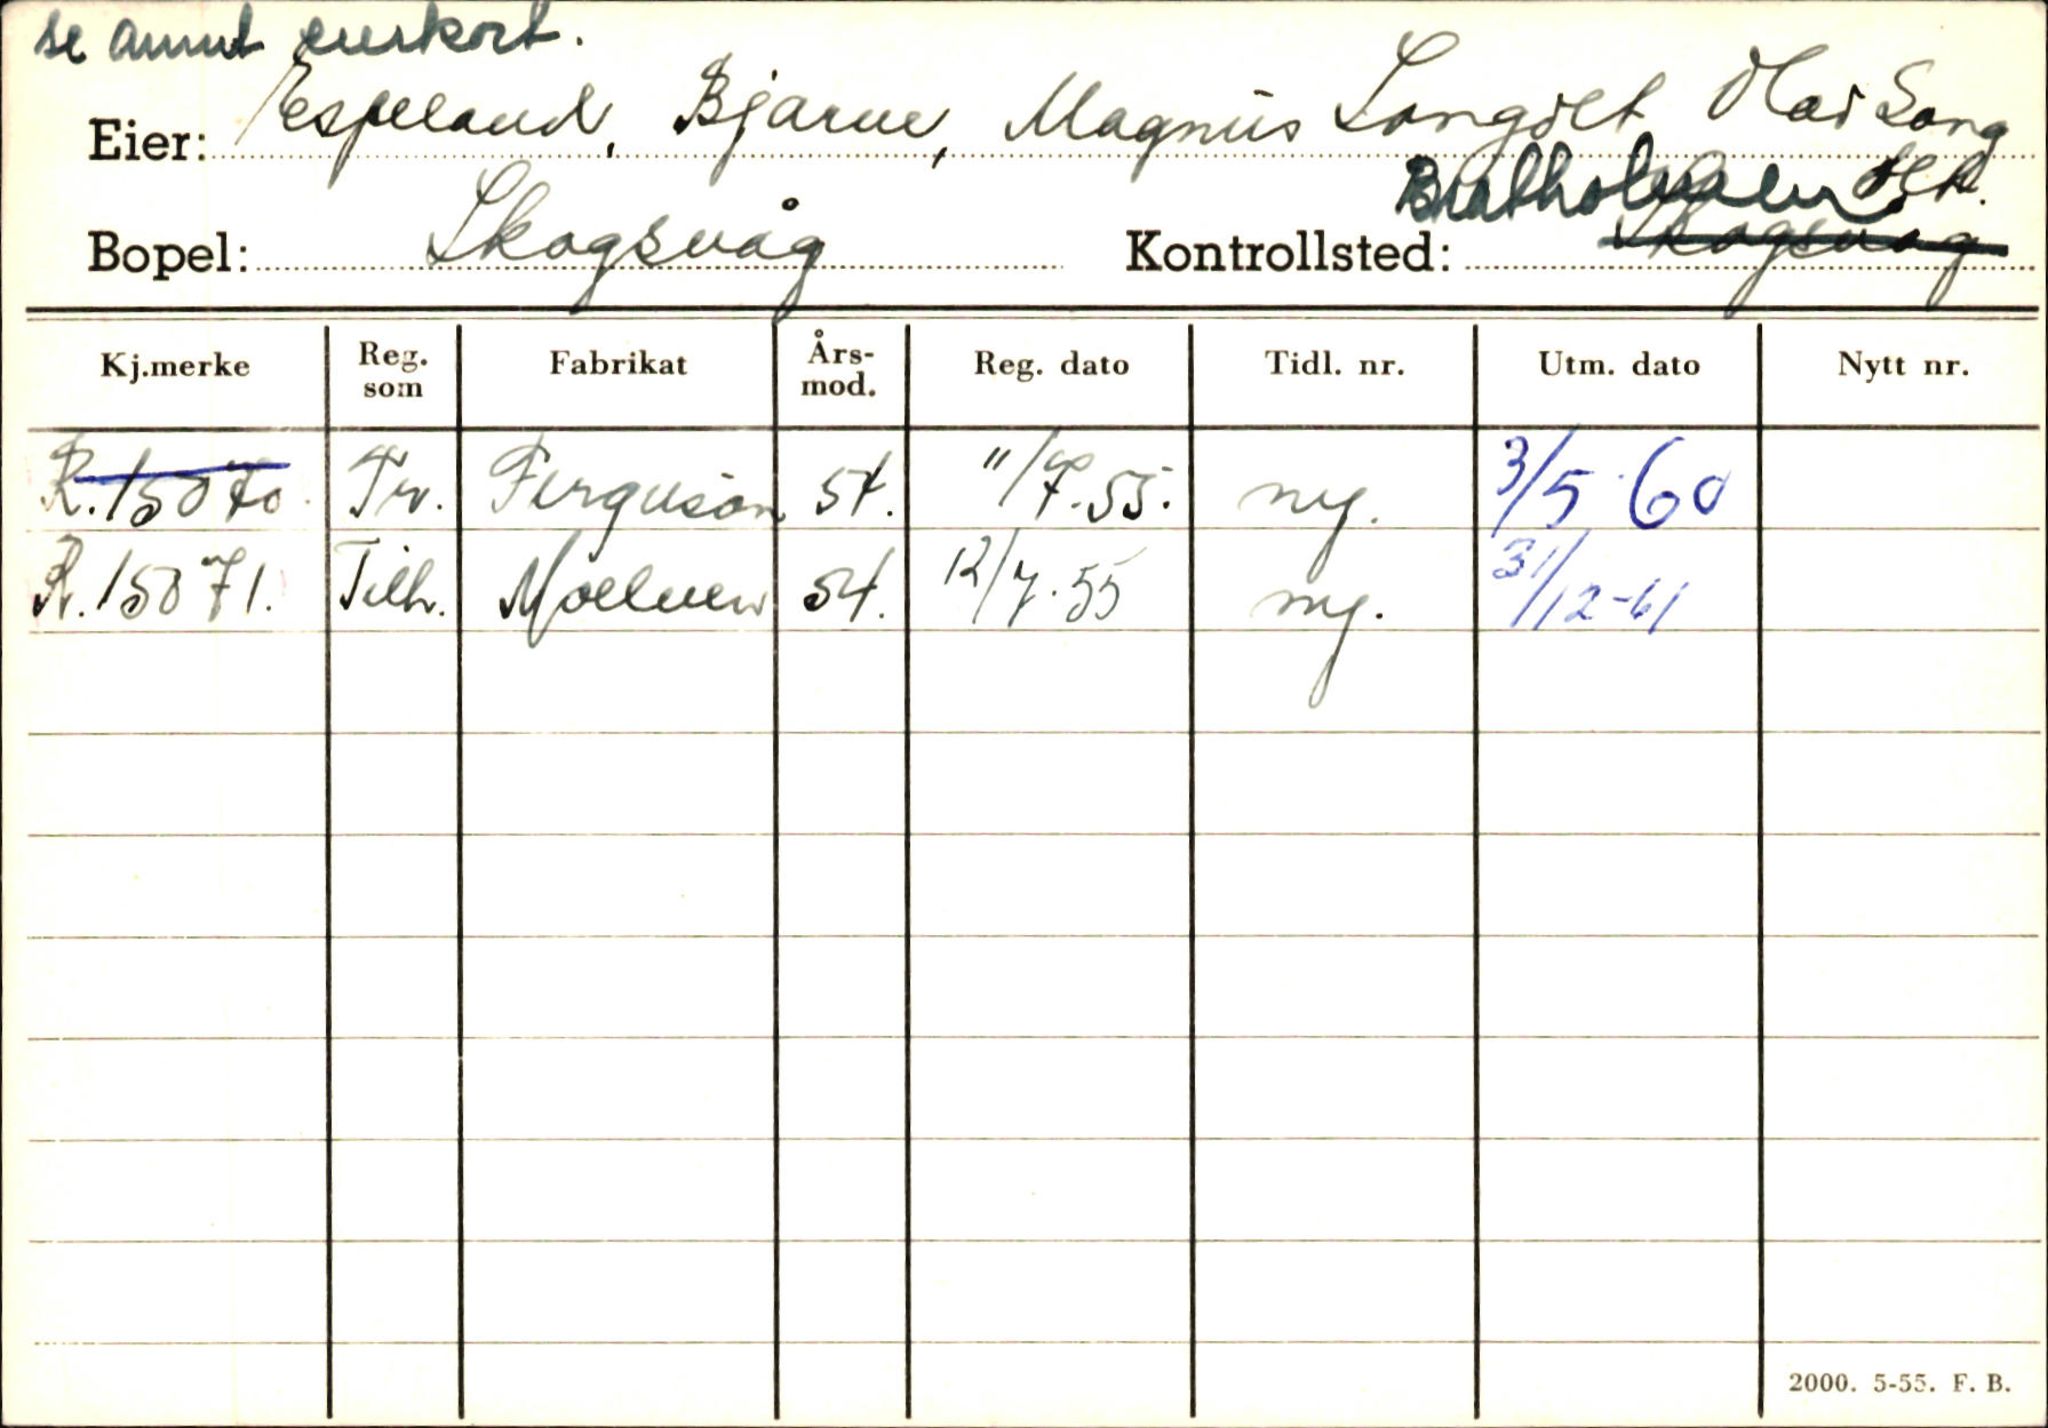 se annet eierkort.
Eier: Espeland, Bjarne, Magnus Langølt Olai Lang
ølt.
Bratholmen
Bopel: Skogsvåg Kontrollsted: Skogsvåg
Kj.merke Reg. som Fabrikat Års-mod. Reg. dato Tidl. nr. Utm. dato Nytt nr.
R.15070 Tr. Ferguson 54. 11/7.55. ny. 3/5-60
R.15071. Tilh. Moelven 54. 12/7.55 ny. 31/12-61
2000. 5-55. F. B.